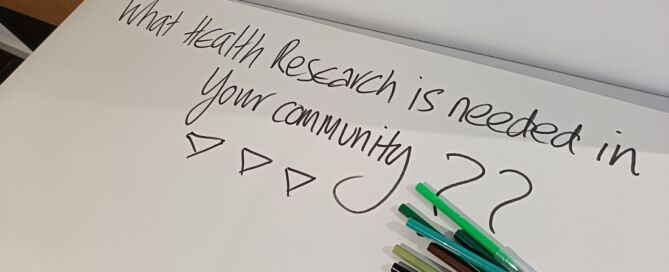 What Health Research is needed in
Your community ??